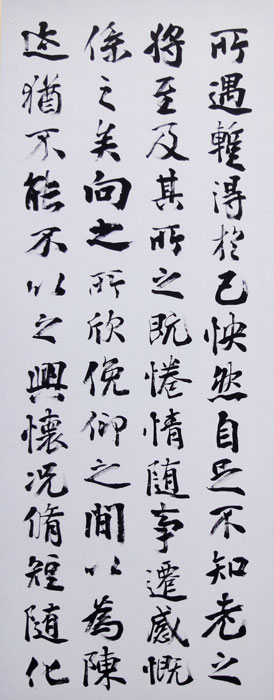 所遇蹔得於己怏然自足不知老之
将至及其所之既惓情随事遷感慨
係之矣向之所欣俛仰之間以為陳
迹猶不能不以之興懷况脩短随化